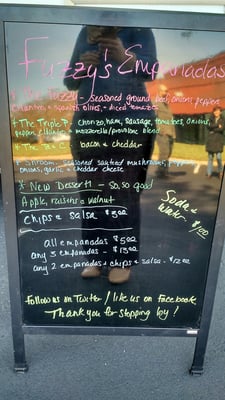 Fuzzy's Empanadas
* The Fuzzy - seasoned ground beef, onions, peppers
cilantro, spanish olives, + diced tomatoes
* The Triple P - chorizo, ham, sausage, tomatoes, onions,
pepper, + mozzarella/provolone blend
* The B & C - bacon & cheddar
* Shroom - seasoned sautéed mushrooms,
onions, garlic & cheddar cheese
* New Dessert! - So, so good
Apple, raisins & walnut
Chips & Salsa $3.00
Soda &
Water - $1.00
all empanadas $5.00
any 3 empanadas -
any 2 empanadas & chips & salsa - $12.00
Follow us on Twitter / like us on facebook
Thank you for stopping by!